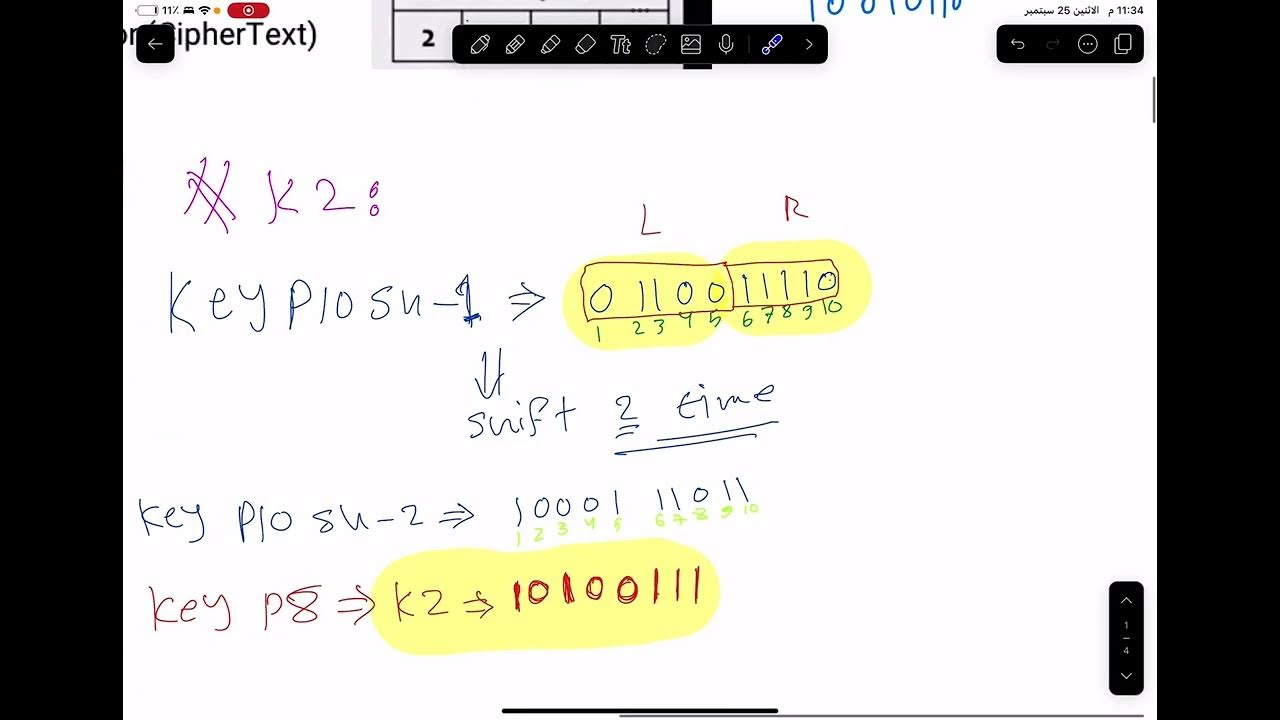 11% 11:34 م الاثنين 25 سبتمبر
or(CipherText)
2
Tt
K2:
L R
Key P10 Sh-1 ⇒ 0 1 1 0 0 1 1 1 1 0
1 2 3 4 5 6 7 8 9 10
⇓
shift 2 time
Key P10 Sh-2 ⇒ 1 0 0 0 1 1 1 0 1 1
1 2 3 4 5 6 7 8 9 10
Key P8 ⇒ K2 ⇒ 10100111
1
4